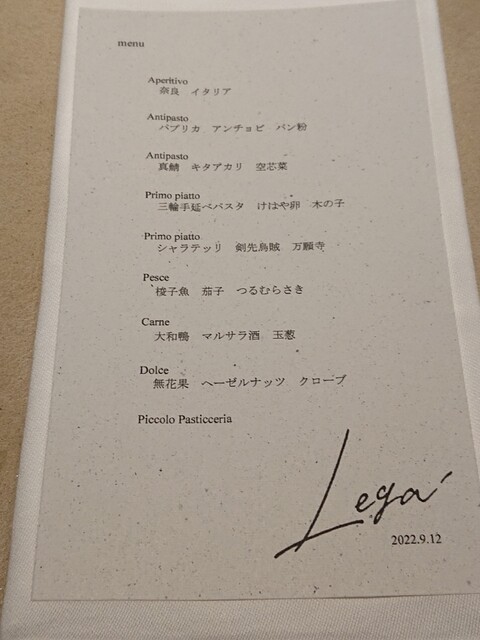 menu
Aperitivo
奈良 イタリア
Antipasto
パプリカ アンチョビ パン粉
Antipasto
真鯖 キタアカリ 空芯菜
Primo piatto
三輪手延べパスタ けはや卵 木の子
Primo piatto
シャラテッリ 剣先烏賊 万願寺
Pesce
梭子魚 茄子 つるむらさき
Carne
大和鴨 マルサラ酒 玉葱
Dolce
無花果 ヘーゼルナッツ クローブ
Piccolo Pasticceria
Lega'
2022.9.12